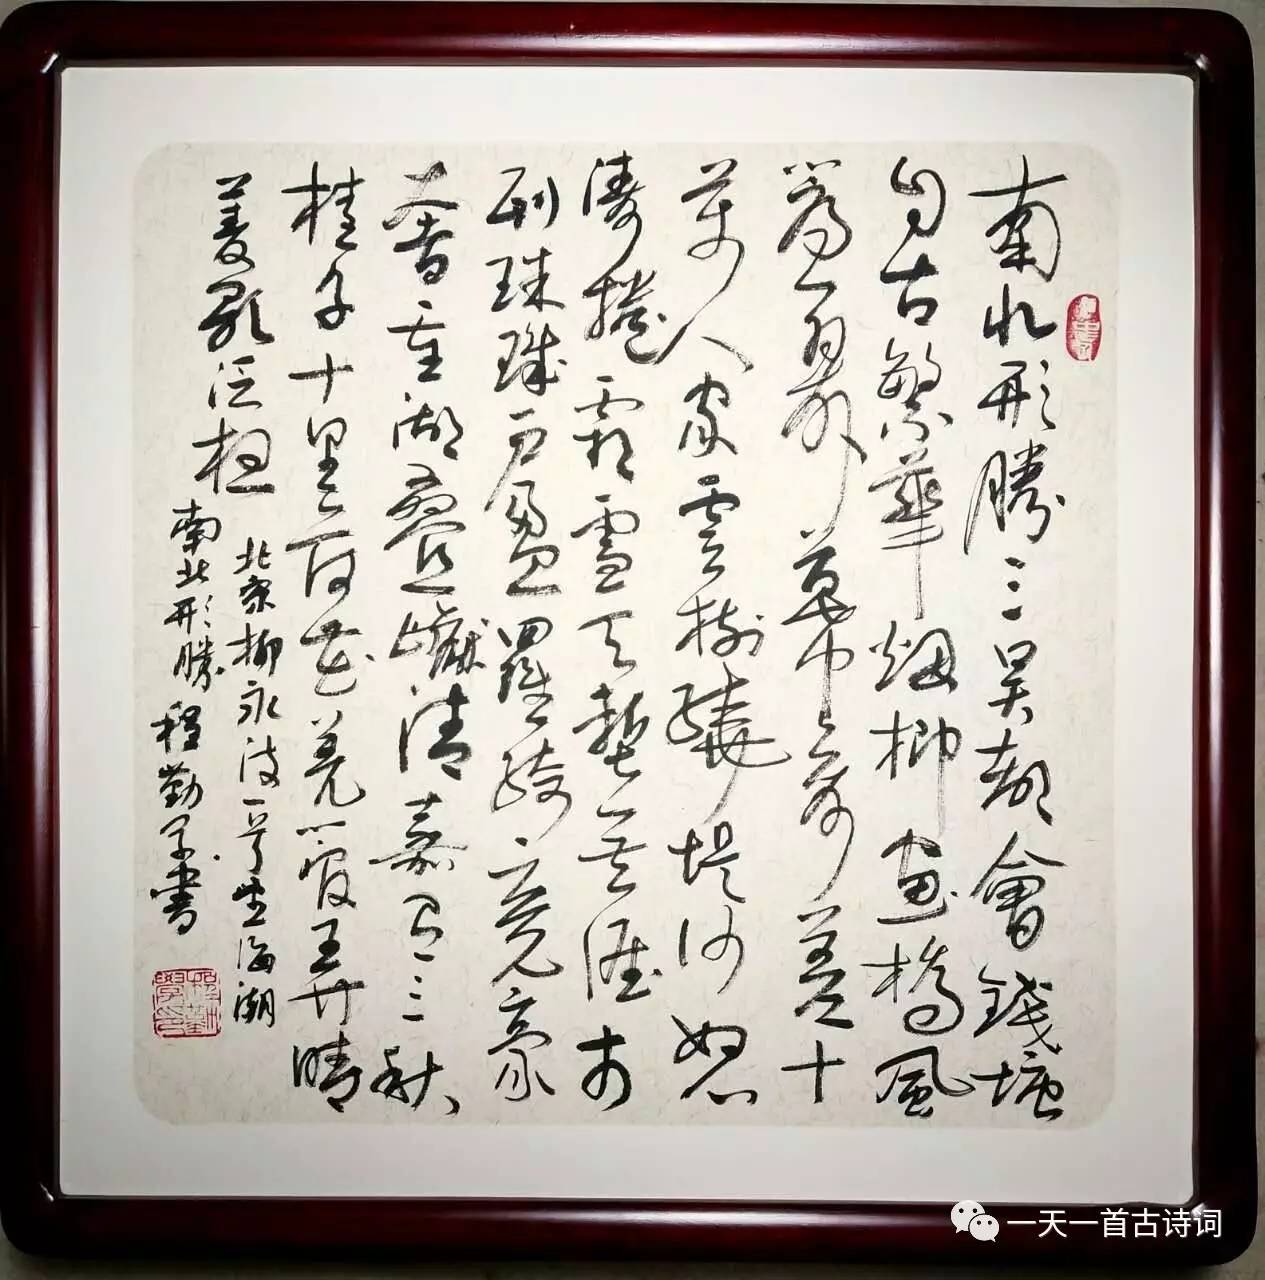 南北形勝三吴都會錢塘
自古繁華烟柳畫橋風
簾翠幕參差十
萬人家雲樹繞堤沙怒
濤捲霜雪天塹無涯市
列珠璣户盈羅綺競豪
奢重湖疊巘清嘉有三秋
桂子十里荷花羌管弄晴
菱歌泛
北宋柳永词一首望海潮
南北形勝程勤学書
程勤學印
一天一首古诗词